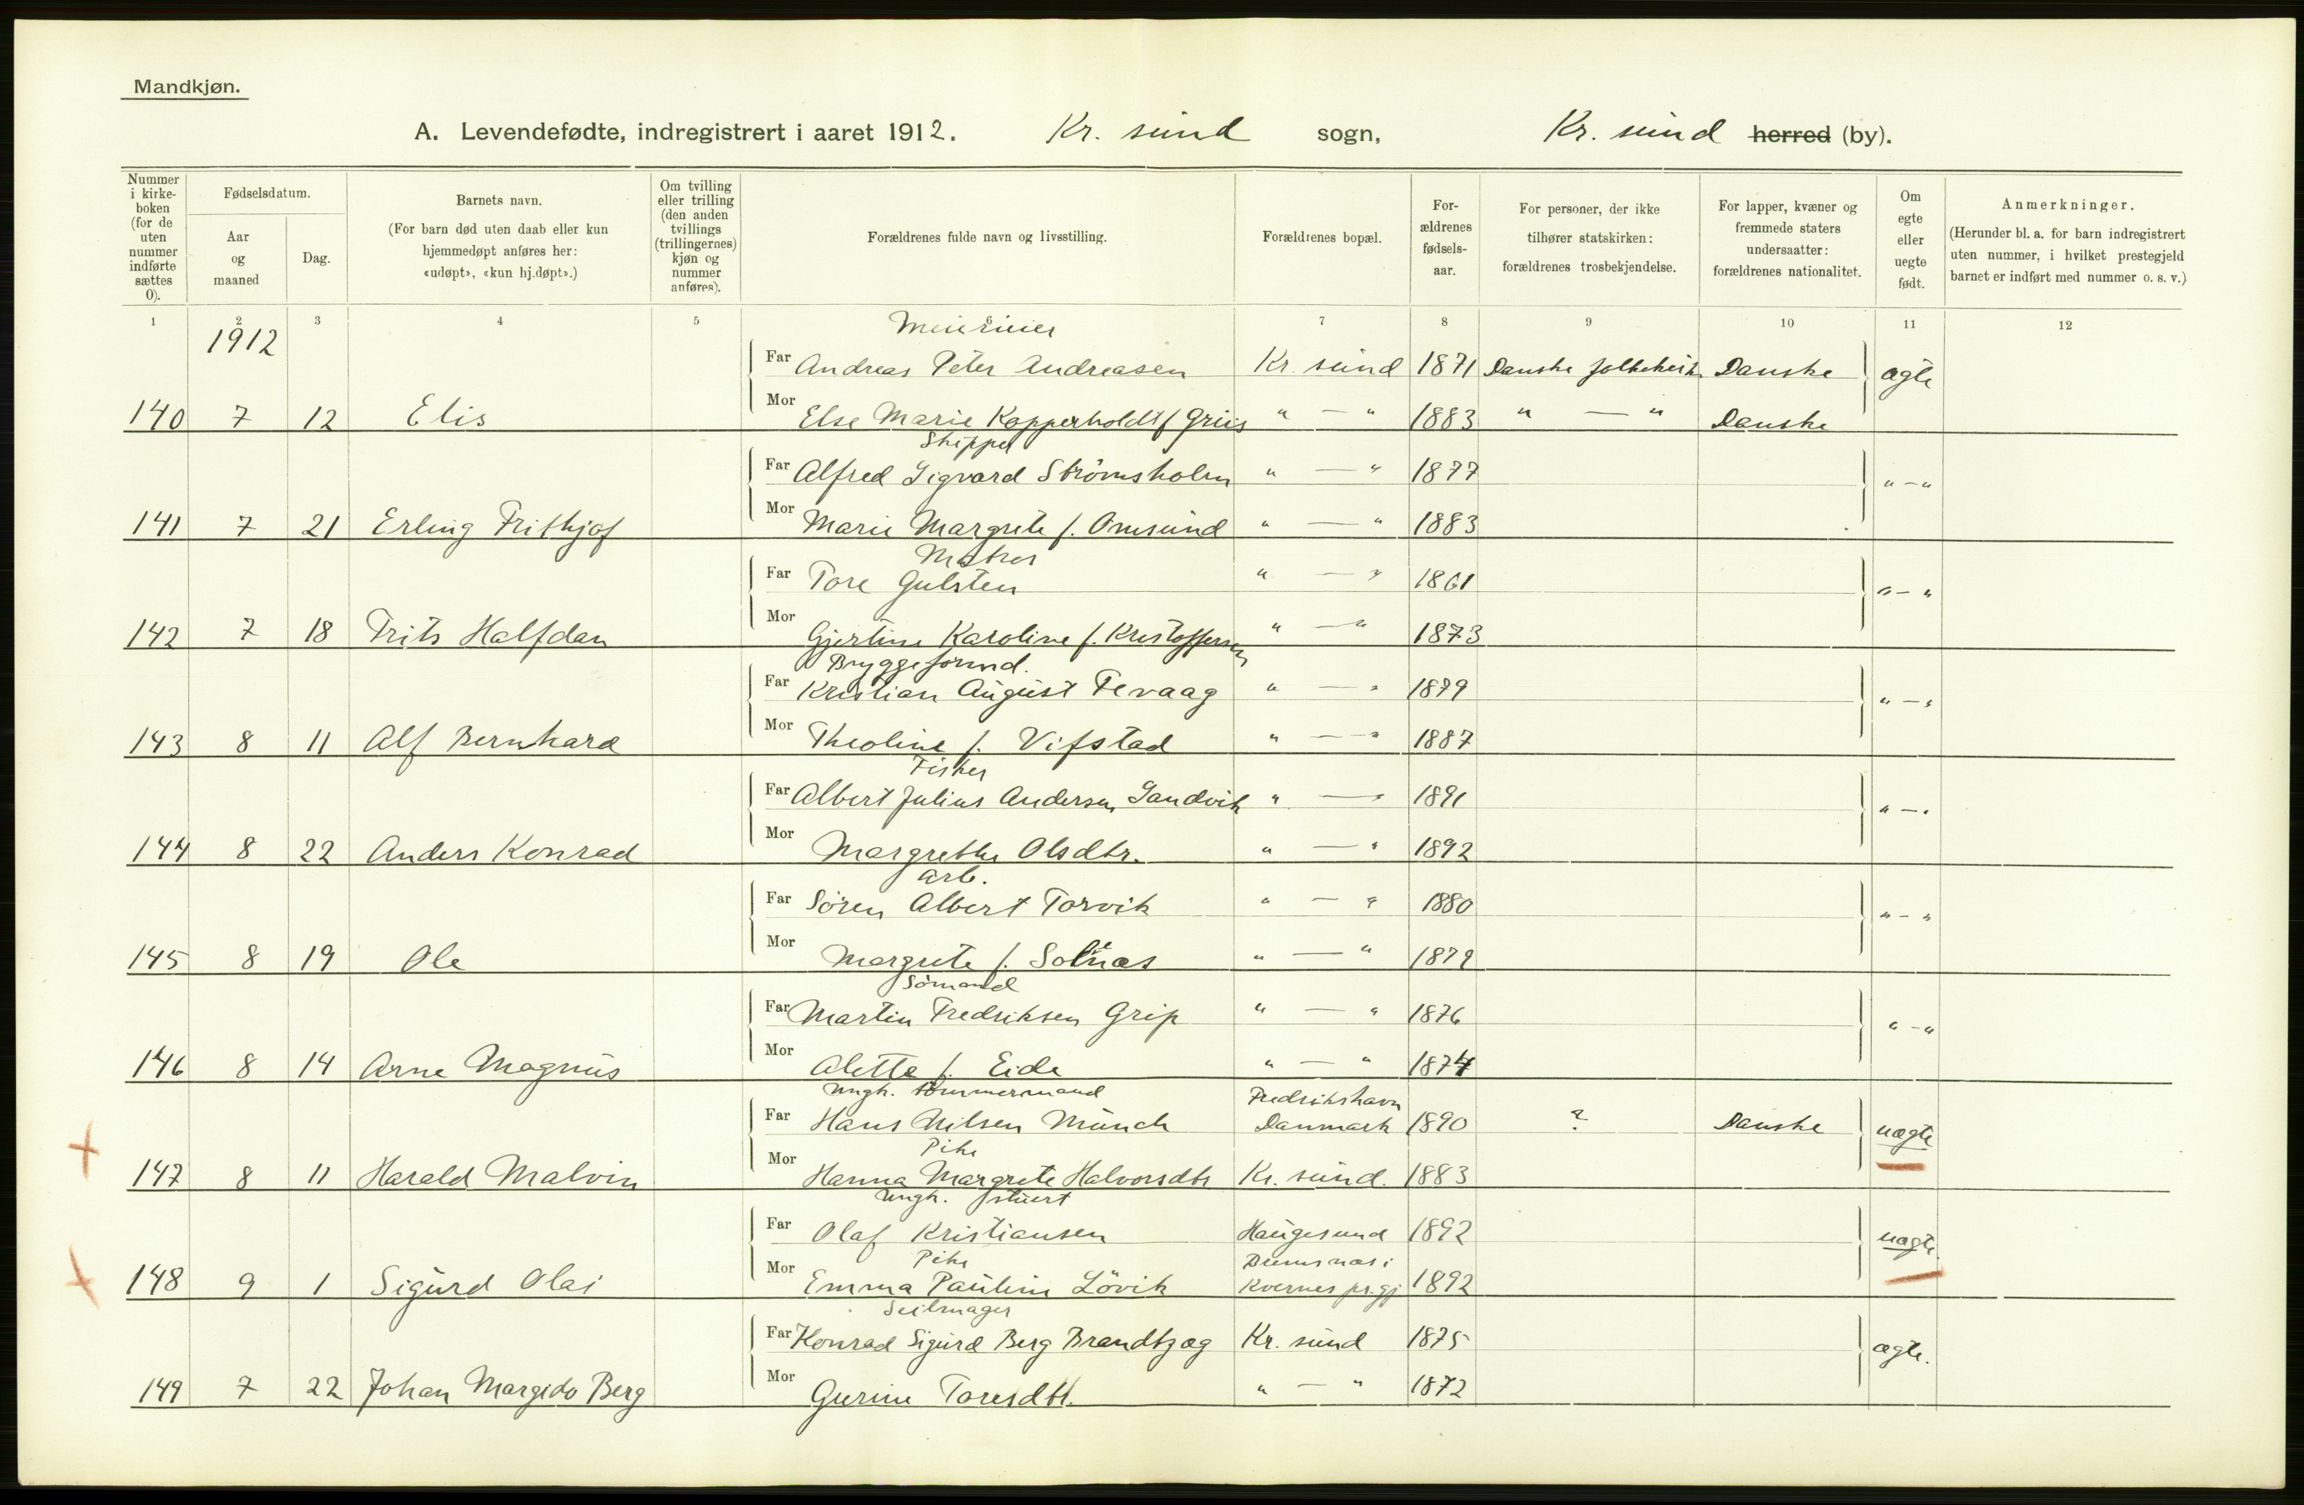 Mandkjøn.
A. Levendefødte, indregistrert i aaret 1912. Kr. sund sogn, Kr. sund herred (by).
Nummer i kirkeboken (for de uten nummer indførte sættes 0).
Fødselsdatum.
Aar og maaned
Dag.
Barnets navn.
(For barn død uten daab eller kun hjemmedøpt anføres her: «udøpt», «kun hj.døpt».)
Om tvilling eller trilling (den anden tvillings (trillingernes) kjøn og nummer anføres).
Forældrenes fulde navn og livsstilling.
Forældrenes bopæl.
Forældrenes fødselsaar.
For personer, der ikke tilhører statskirken: forældrenes trosbekjendelse.
For lapper, kvæner og fremmede staters undersaatter: forældrenes nationalitet.
Om egte eller uegte født.
Anmerkninger.
(Herunder bl. a. for barn indregistrert uten nummer, i hvilket prestegjeld barnet er indført med nummer o. s. v.)
1 2 3 4 5 6 7 8 9 10 11 12
1912
Far Andreas Peter Andreasen Kr. sund 1871 Danske Danske ægte
140 7 12 Elis Mor Else Marie Kopperholdt f Griis " — " 1883 " — " Danske
Skipper
Far Alfred Sigvard Strömsholm " — " 1877 " — "
141 7 21 Erling Frithjof Mor Marie Margrete f. Omsund " — " 1883
Matros
Far Tore Gulsten " — " 1861 " — "
142 7 18 Frits Halfdan Mor Gjertine Karoline f. Kristoffersen " — " 1873
Bryggeformd.
Far Kristian August Fevaag " — " 1879 " — "
143 8 11 Alf Bernhard Mor Theoline f. Vifstad " — " 1887
Fisker
Far Albert Julius Andersen Sandvik " — " 1891 " — "
144 8 22 Anders Konrad Mor Margrethe Olsdtr. " — " 1892
Arb.
Far Sören Albert Torvik " — " 1880 " — "
145 8 19 Ole Mor Margrete f. Solnæs " — " 1879
Sömand
Far Martin Fredriksen Grip " — " 1876 " — "
146 8 14 Arne Magnus Mor Alette f. Eide " — " 1874
Ungk. tömmermand Fredrikshavn
Far Hans Nilsen Münch Danmark 1890 ? Danske uægte
Pike
147 8 11 Harald Malvin Mor Hanna Margrete Halvorsdtr Kr. sund. 1883
Ungk. stuert
Far Olaf Kristiansen Haugesund 1892 uægte
Pike Bremsnæs i
148 9 1 Sigurd Olai Mor Emma Pauline Lövik Kvernes pr.gj 1892
Seilmager
Far Konrad Sigurd Berg Brandtzæg Kr. sund 1875 ægte.
149 7 22 Johan Margido Berg Mor Gurine Toresdtr. " — " 1872